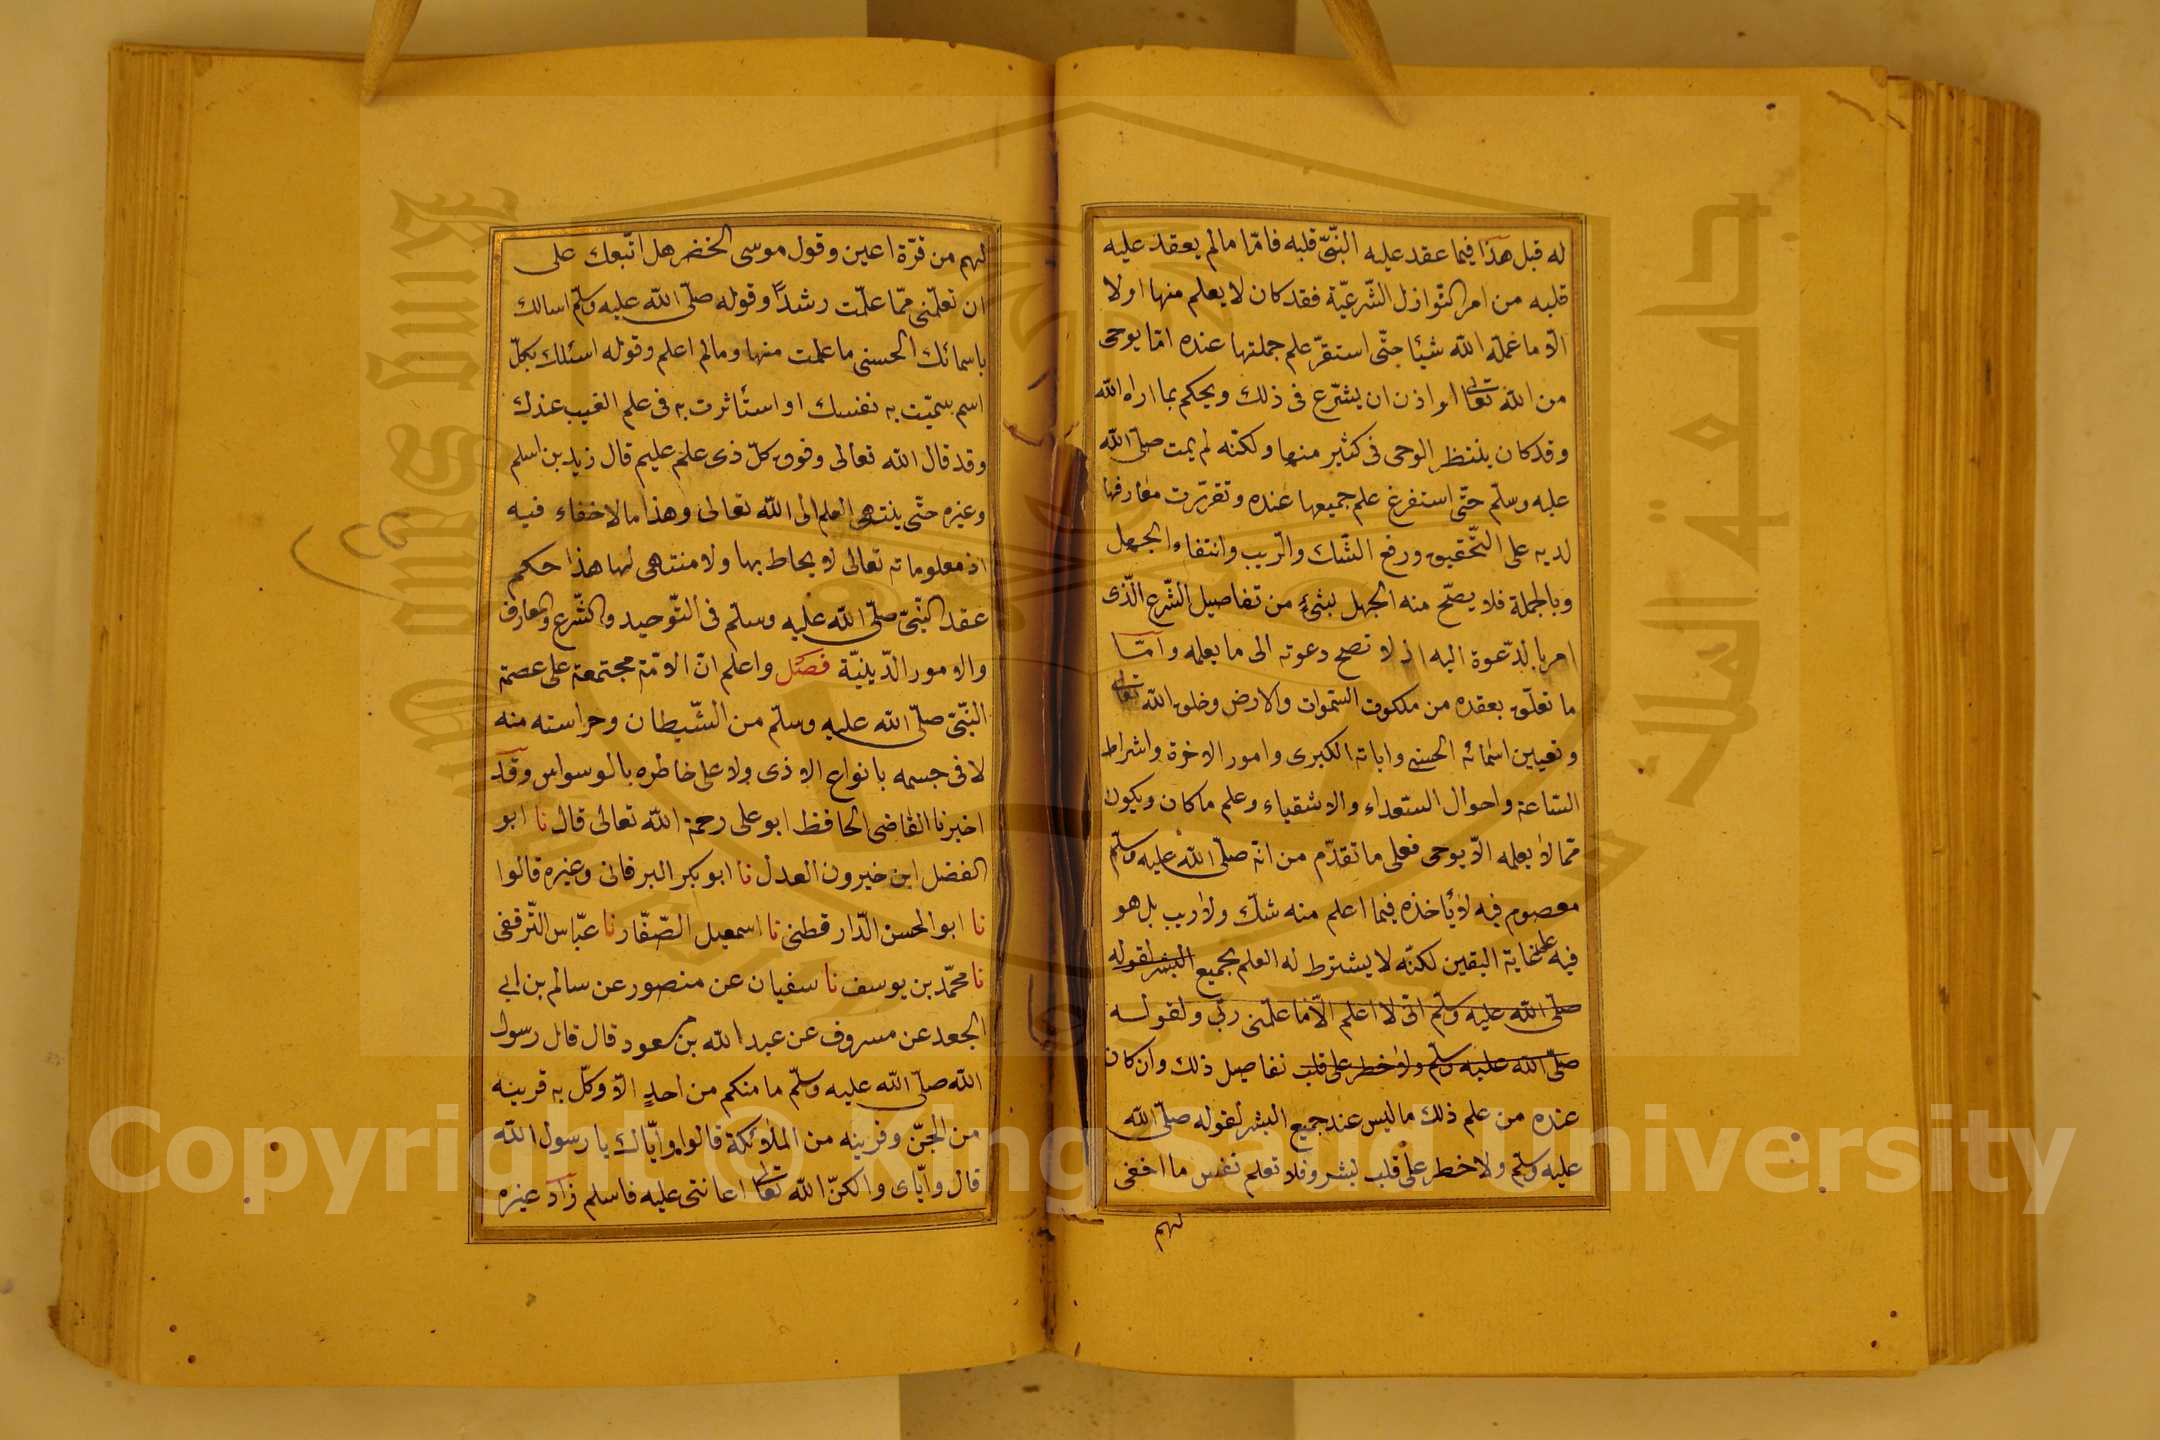 له قبل هذا فيما عقد عليه النّبىّ قلبه فامّا ما لم يعقد عليه
قلبه من امر النّوازل الشّرعيّة فقد كان لا يعلم منها اولا
الّا ما علّمه الله شيئا حتّى استقرّ علم جملتها عنده امّا بوحى
من الله تعالى او اذن ان يشرّع فى ذلك ويحكم بما اراه الله
وقد كان ينتظر الوحى فى كثير منها ولكنّه لم يمت صلّى الله
عليه وسلّم حتّى استفرغ علم جميعها عنده وتقرّرت معارفها
لديه على التّحقيق ورفع الشّك والرّيب وانتفاء الجهل
وبالجملة فلا يصّح منه الجهل بشئ من تفاصيل الشّرع الّذى
امر بالدّعوة اليه اذ لا تصح دعوته الى ما يعلمه وامّا
ما تعلّق بعقده من ملكوت السّموات والارض وخلق الله تعالى
وتعيين اسمائه الحسنى واياته الكبرى وامور الاخرة واشراط
السّاعة واحوال السّعداء والاشقياء وعلم ما كان ويكون
ممّا لا يعلمه الّا بوحى فعلى ما تقدّم من انّه صلّى الله عليه وسلّم
معصوم فيه لا يأخذه فيما اعلم منه شكّ ولا ريب بل هو
فيه على غاية اليقين لكنّه لا يشترط له العلم بجميع البشر لقوله
صلّى الله عليه وسلّم انّى لا اعلم الّا ما علّمنى ربّى ولقوله
صلّى الله عليه وسلّم ولا خطر على قلب تفاصيل ذلك وان كان
عنده من علم ذلك ما ليس عند جميع البشر لقوله صلّى الله
عليه وسلّم ولا خطر على قلب بشر وفلا تعلم نفس ما اخفى
لهم
لهم من قرّة اعين وقول موسى الخضر هل اتّبعك على
ان تعلّمنى ممّا علّمت رشداً وقوله صلّى الله عليه وسلّم اسالك
باسمائك الحسنى ما علمت منها وما لم اعلم وقوله اسئلك بكلّ
اسم سميّت به نفسك او استأثرت به فى علم الغيب عندك
وقد قال الله تعالى وفوق كلّ ذى علم عليم قال زيد بن اسلم
وغيره حتّى ينتهى العلم الى الله تعالى وهذا ما لا خفاء فيه
اذ معلوماته تعالى لا يحاط بها ولا منتهى لها هذا حكم
عقد النّبىّ صلّى الله عليه وسلّم فى التّوحيد والشّرع والمعارف
والامور الدّينيّة فصل واعلم انّ الامّة مجتمعة على عصمة
النّبىّ صلّى الله عليه وسلّم من الشّيطان وحراسته منه
لا فى جسمه بانواع الاذى ولا على خاطره بالوسواس وقد
اخبرنا القاضى الحافظ ابو على رحمة الله تعالى قال نا ابو
الفضل ابن خيرون العدل نا ابو بكر البرقانى وغيره قالوا
نا ابو الحسن الدّارقطنى نا اسمعيل الصّفّار نا عبّاس التّرقفى
نا محمّد بن يوسف نا سفيان عن منصور عن سالم بن ابى
الجعد عن مسروق عن عبد الله بن مسعود قال قال رسول
الله صلّى الله عليه وسلّم ما منكم من أحدٍ الّا وكّل به قرينه
من الجنّ وقرينه من الملائكة قالوا وايّاك يا رسول الله
قال وايّاى والكنّ الله تعالى اعاننى عليه فاسلم زاد غيره
King Saud University
جامعة الملك سعود
Copyright © King Saud University